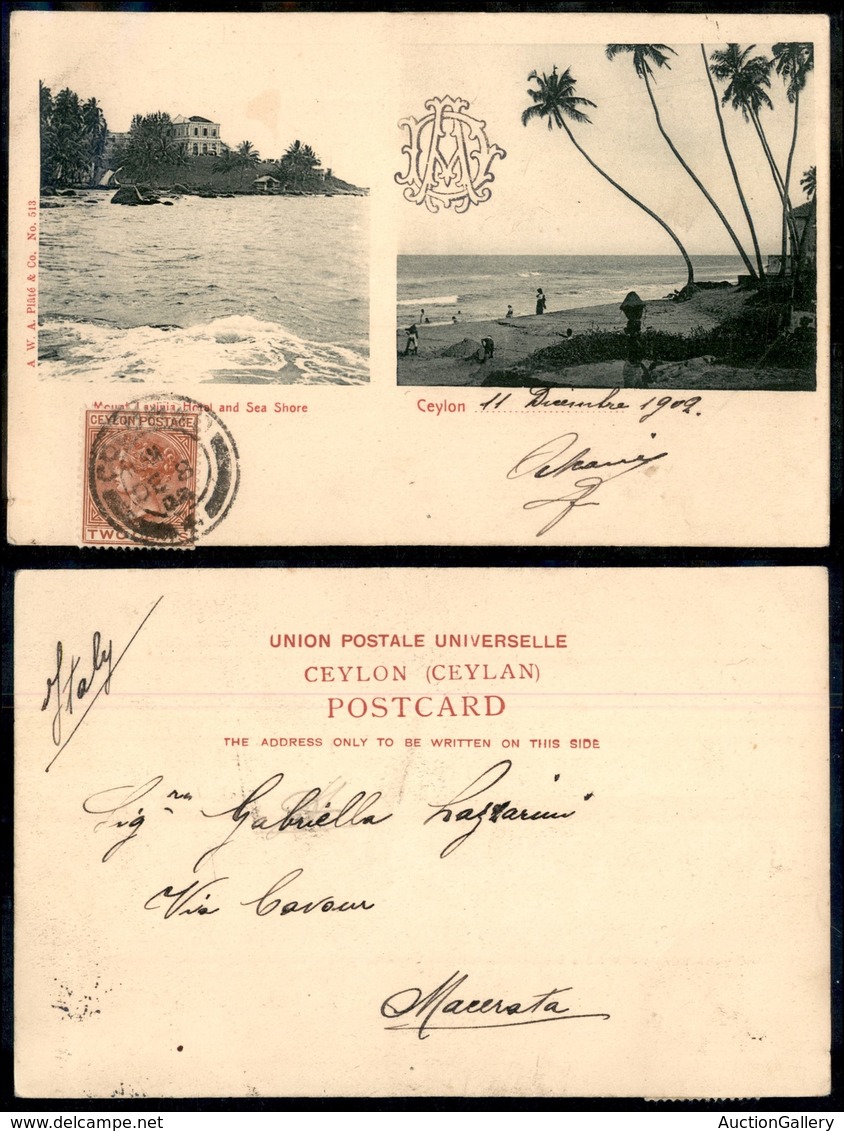 A. W. A. Plâté & Co. No. 513.
Mount Lavinia Hotel and Sea Shore
Ceylon 11 Dicembre 1902.
CEYLON POSTAGE
TWO
Italy
UNION POSTALE UNIVERSELLE
CEYLON (CEYLAN)
POSTCARD
THE ADDRESS ONLY TO BE WRITTEN ON THIS SIDE
Sig.ra Gabriella Lazzarini
Via Cavour
Macerata
AuctionGallery